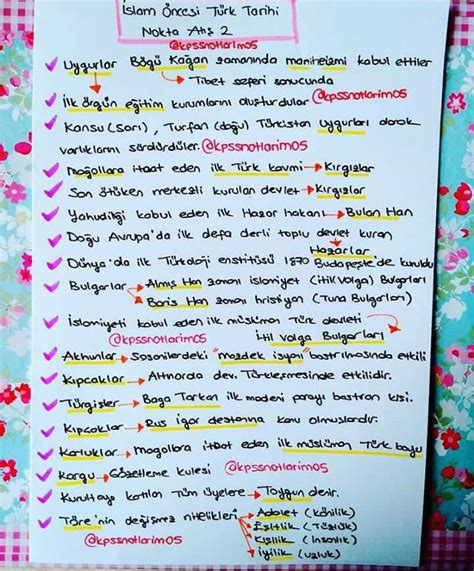 İslam Öncesi Türk Tarihi
Nokta Atış 2
@kpssnotlarim05
Uygurlar Bögü Kağan zamanında maniheizmi kabul ettiler
→ Tibet seferi sonucunda
İlk örgün eğitim kurumlarını oluşturdular @kpssnotlarim05
Kansu (Sarı), Turfan (doğu) Türkistan Uygurları olarak
varlıklarını sürdürdüler. @kpssnotlarim05
Moğollara itaat eden ilk Türk kavmi → Kırgızlar
Son ötüken merkezli kurulan devlet → Kırgızlar
Yahudiliği kabul eden ilk Hazar hakanı → Bulan Han
Doğu Avrupa'da ilk defa derli toplu devlet kuran
Hazarlar
Dünya'da ilk Türkoloji enstitüsü 1870 Budapeşte'de kuruldu
Bulgarlar → Almış Han zamanı islamiyet (İtil Volga) Bulgarları
→ Boris Han zamanı hristiyan (Tuna Bulgarları)
İslamiyeti kabul eden ilk müslüman Türk devleti
@kpssnotlarim05 İtil Volga Bulgarları
Akhunlar → Sasanilerdeki "mazdek isyanı" bastırılmasında etkili
Kıpçaklar → Altınorda dev. Türkleşmesinde etkilidir.
Türgişler → Baga Tarkan ilk madeni parayı bastıran kişi.
Kıpçaklar → Rus igor destanına konu olmuşlardır.
Karluklar → Moğollara itaat eden ilk müslüman Türk boyu
Kargu → Gözetleme kulesi @kpssnotlarim05
Kurultaya katılan tüm üyelere → Toygun denir.
Töre'nin değişmez nitelikleri → Adalet (könilik)
→ Eşitlik (Tüzlük)
@kpssnotlarim05 → Kişilik (insanlık)
→ İyilik (uzluk)